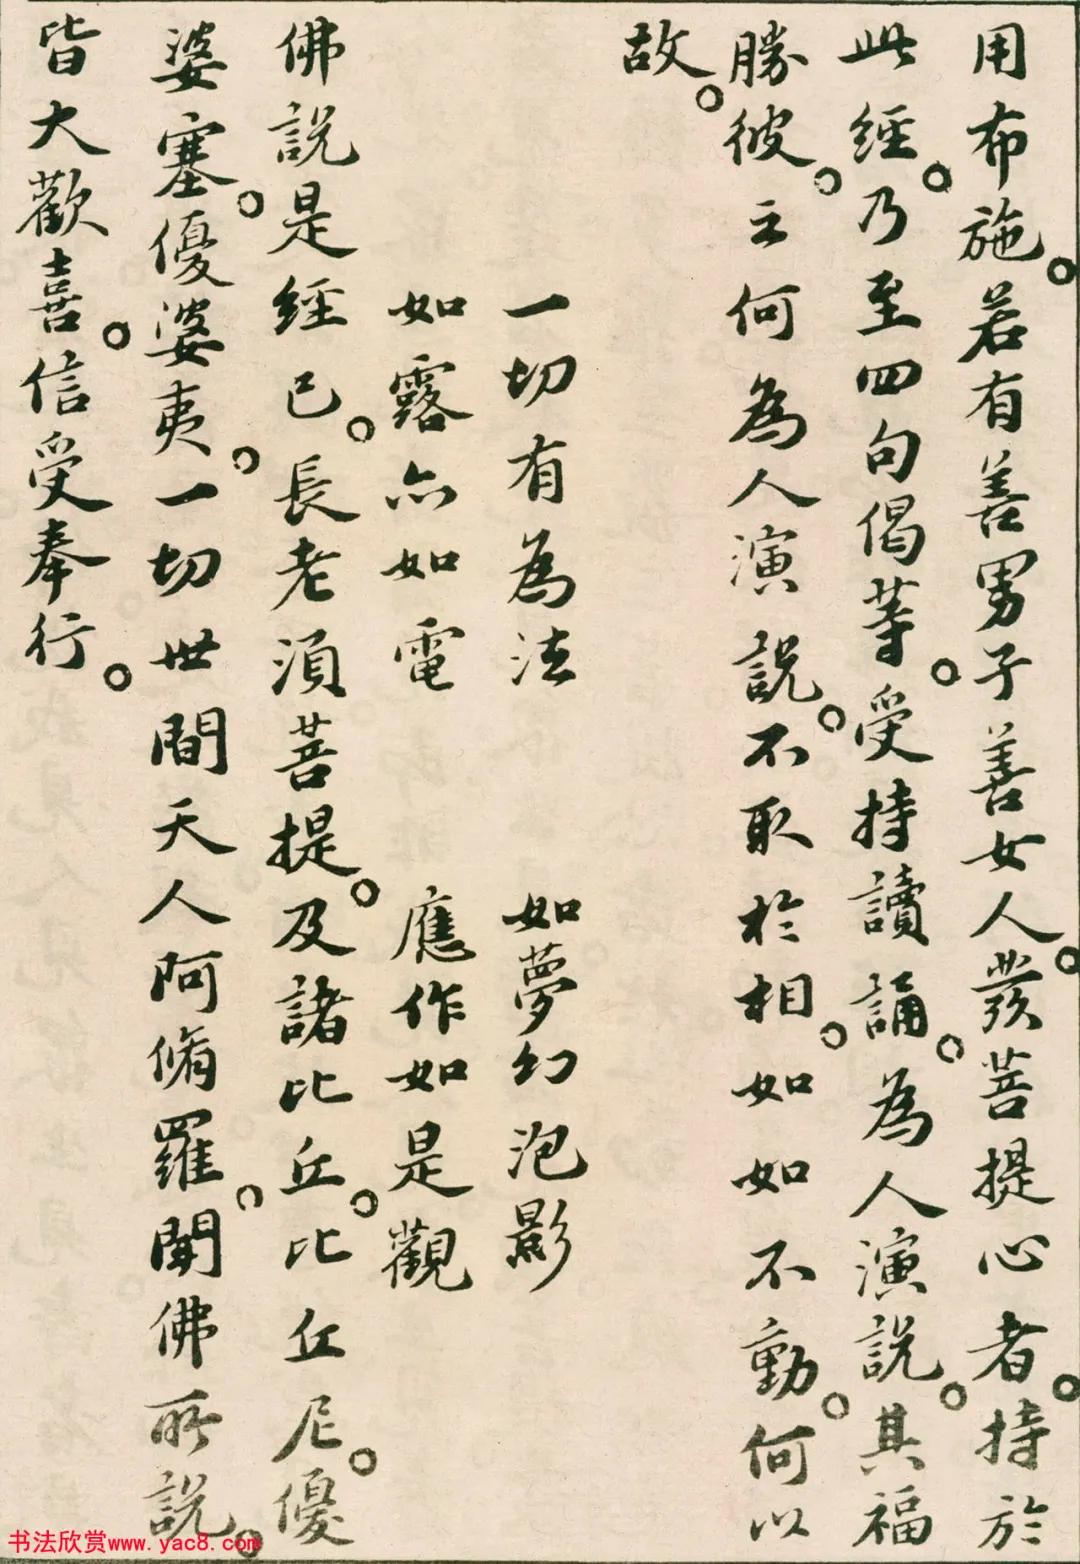 用布施。若有善男子善女人。發菩提心者。持於
此經。乃至四句偈等。受持讀誦。為人演說。其福
勝彼。云何為人演說。不取於相。如如不動。何以
故。
一切有為法 如夢幻泡影
如露亦如電 應作如是觀
佛說是經已。長老須菩提。及諸比丘。比丘尼。優
婆塞。優婆夷。一切世間天人阿脩羅。聞佛所說。
皆大歡喜。信受奉行。
书法欣赏www.yac8.com